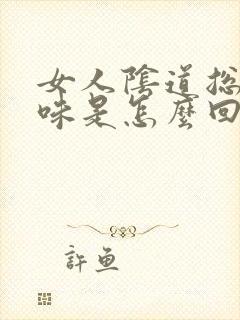 女人陰道總
味是怎麼回
許魚